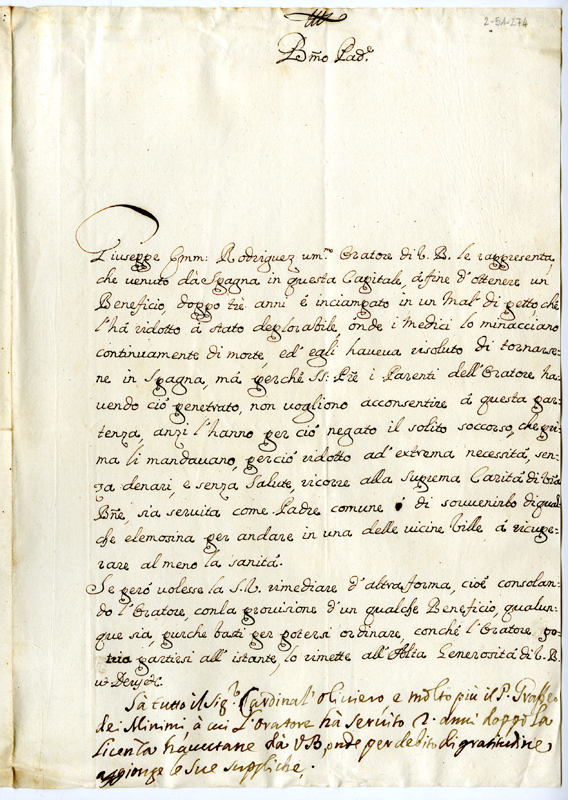 2-51-274
Bmo Pad.e
Giuseppe Emm: Rodriguez um.mo Oratore di V. B. le rappresenta,
che venuto dà Spagna in questa Capitale, à fine d'ottenere un
Beneficio, doppo trè anni è inciampato in un mal di petto che
l'hà ridotto à stato deplorabile, onde i Medici lo minacciano
continuamente di morte, ed' egli haveva risoluto di tornarse-
ne in Spagna, mà perchè SS: Pře i Parenti dell'Oratore ha-
vendo ciò penetrato, non vogliono acconsentire à questa par-
tenza, anzi l'hanno per ciò negato il solito soccorso, che pri-
ma li mandavano, perciò ridotto ad' extrema necessità, sen-
za denari, e senza salute, ricorre alla Suprema Carità di Vrã
Bñe, sia servita come Padre comune è di sovvenirlo di qual-
che elemosina per andare in una delle vicine Ville à ricupe-
rare al meno la sanità.
Se però volesse la S.V. rimediare d'altra forma, cioè consolan-
do l'Oratore, con la provisione d'un qualche Beneficio, qualun-
que sia, purche basti per potersi ordinare, conchè l'Oratore po-
tria partirsi all'istante, lo rimette all'Alta Generosità di V. B.
Sà tutto il Sig.r Cardinal' Oliviero e molto più il P.
de' Minimi, à cui l'Oratore hà servito 2. anni doppo la
licenza havutane dà VB, onde per debito di gratitudine
aggionge le sue suppliche.